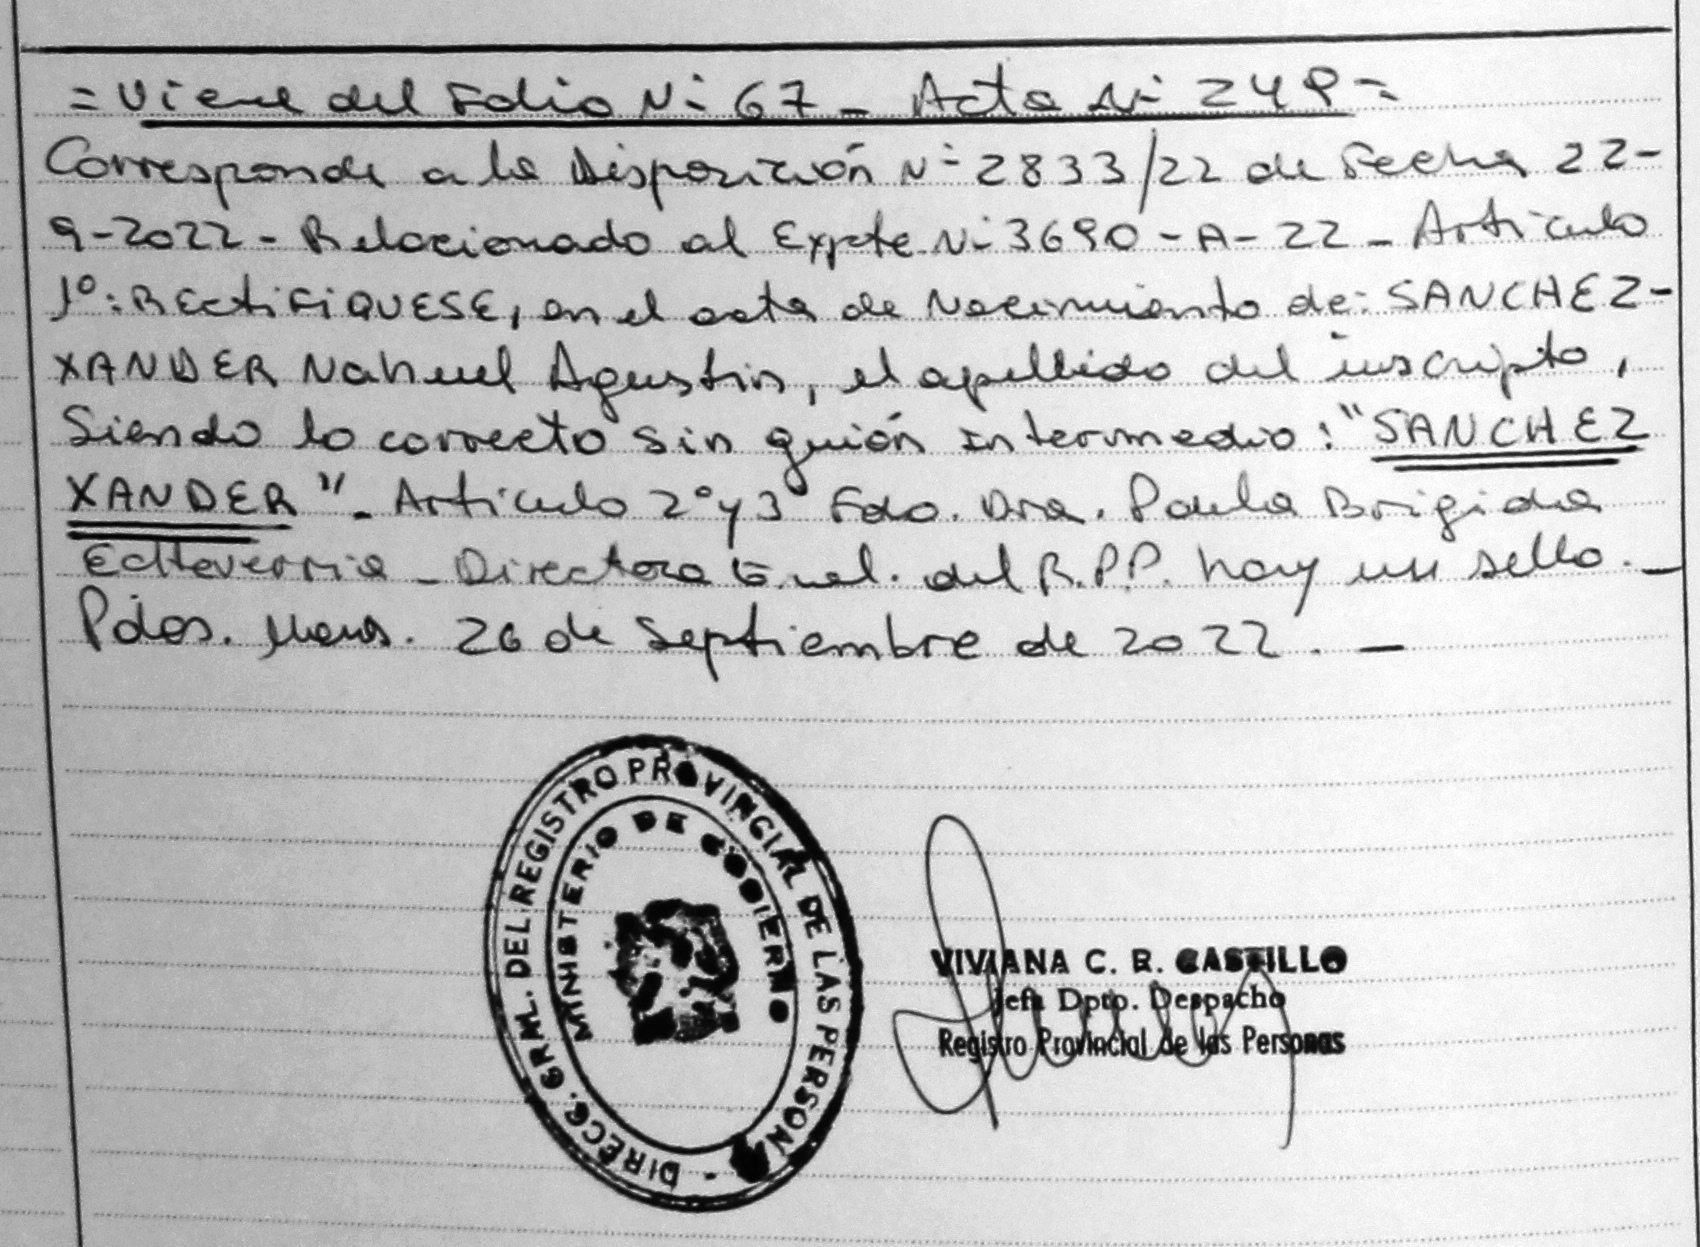 = Viene del Folio N- 67 - Acta N- 249 =
Corresponde a la Disposición N- 2833/22 de Fecha 22-
9-2022- Relacionado al Expte N- 3690-A-22 - Articulo
1º: RECtiFiQUESE, en el acta de Nacimiento de: SANCHEZ-
XANDER Nahuel Agustin, el apellido del inscripto,
Siendo lo correcto sin guión intermedio: "SANCHEZ
XANDER" - Articulo 2º y 3º Fdo. Dra. Paula Brigida
Echeverria - Directora Gral. del R.P.P. hay un sello. -
Pdas. Mnes. 26 de Septiembre de 2022. -
DIRECC. GRAL. DEL REGISTRO PROVINCIAL DE LAS PERSONAS -
MINISTERIO DE GOBIERNO
VIVIANA C. R. CASTILLO
Jefa Dpto. Despacho
Registro Provincial de las Personas